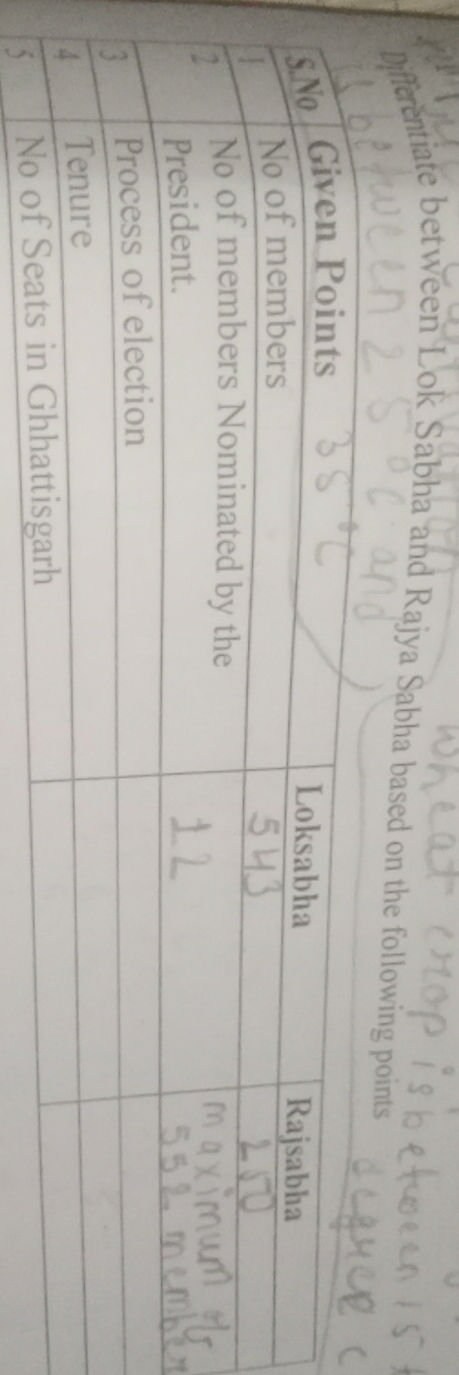 Differentiate between Lok Sabha and Rajya Sabha based on the following points
wheat crop is between 15
between 25°c and
degree c
35°c
S.No Given Points Loksabha Rajsabha
1 No of members 543 250
2 No of members Nominated by the President. 12 maximum of 552 member
3 Process of election
4 Tenure
5 No of Seats in Ghhattisgarh